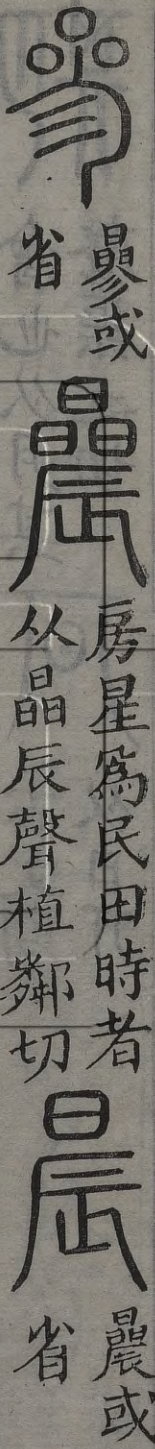 參
曑或
省
曟
房星為民田時者
从晶辰聲植鄰切
晨
曟或
省